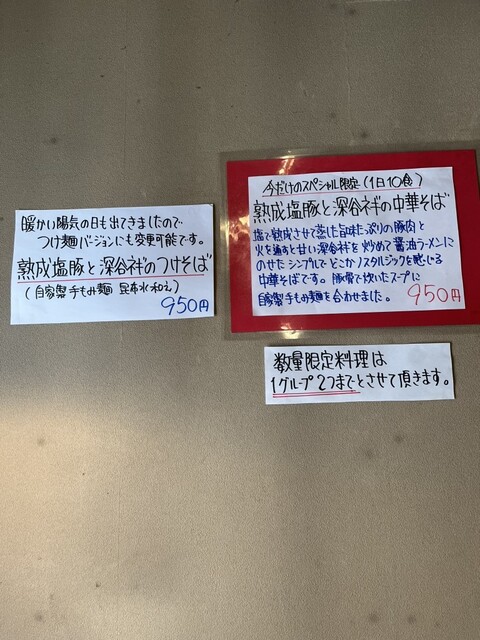 暖かい陽気の日も出てきましたので
つけ麺バージョンにも変更可能です。
熟成塩豚と深谷ネギのつけそば
(自家製手もみ麺 昆布水和え)
950円
今だけのスペシャル限定(1日10食)
熟成塩豚と深谷ネギの中華そば
塩で熟成させて蒸した旨味たっぷりの豚肉と
火を通すと甘い深谷ネギを炒めて醤油ラーメンに
のせたシンプルでどこかノスタルジックを感じる
中華そばです。豚骨で炊いたスープに
自家製手もみ麺を合わせました。
950円
数量限定料理は
1グループ2つまでとさせて頂きます。